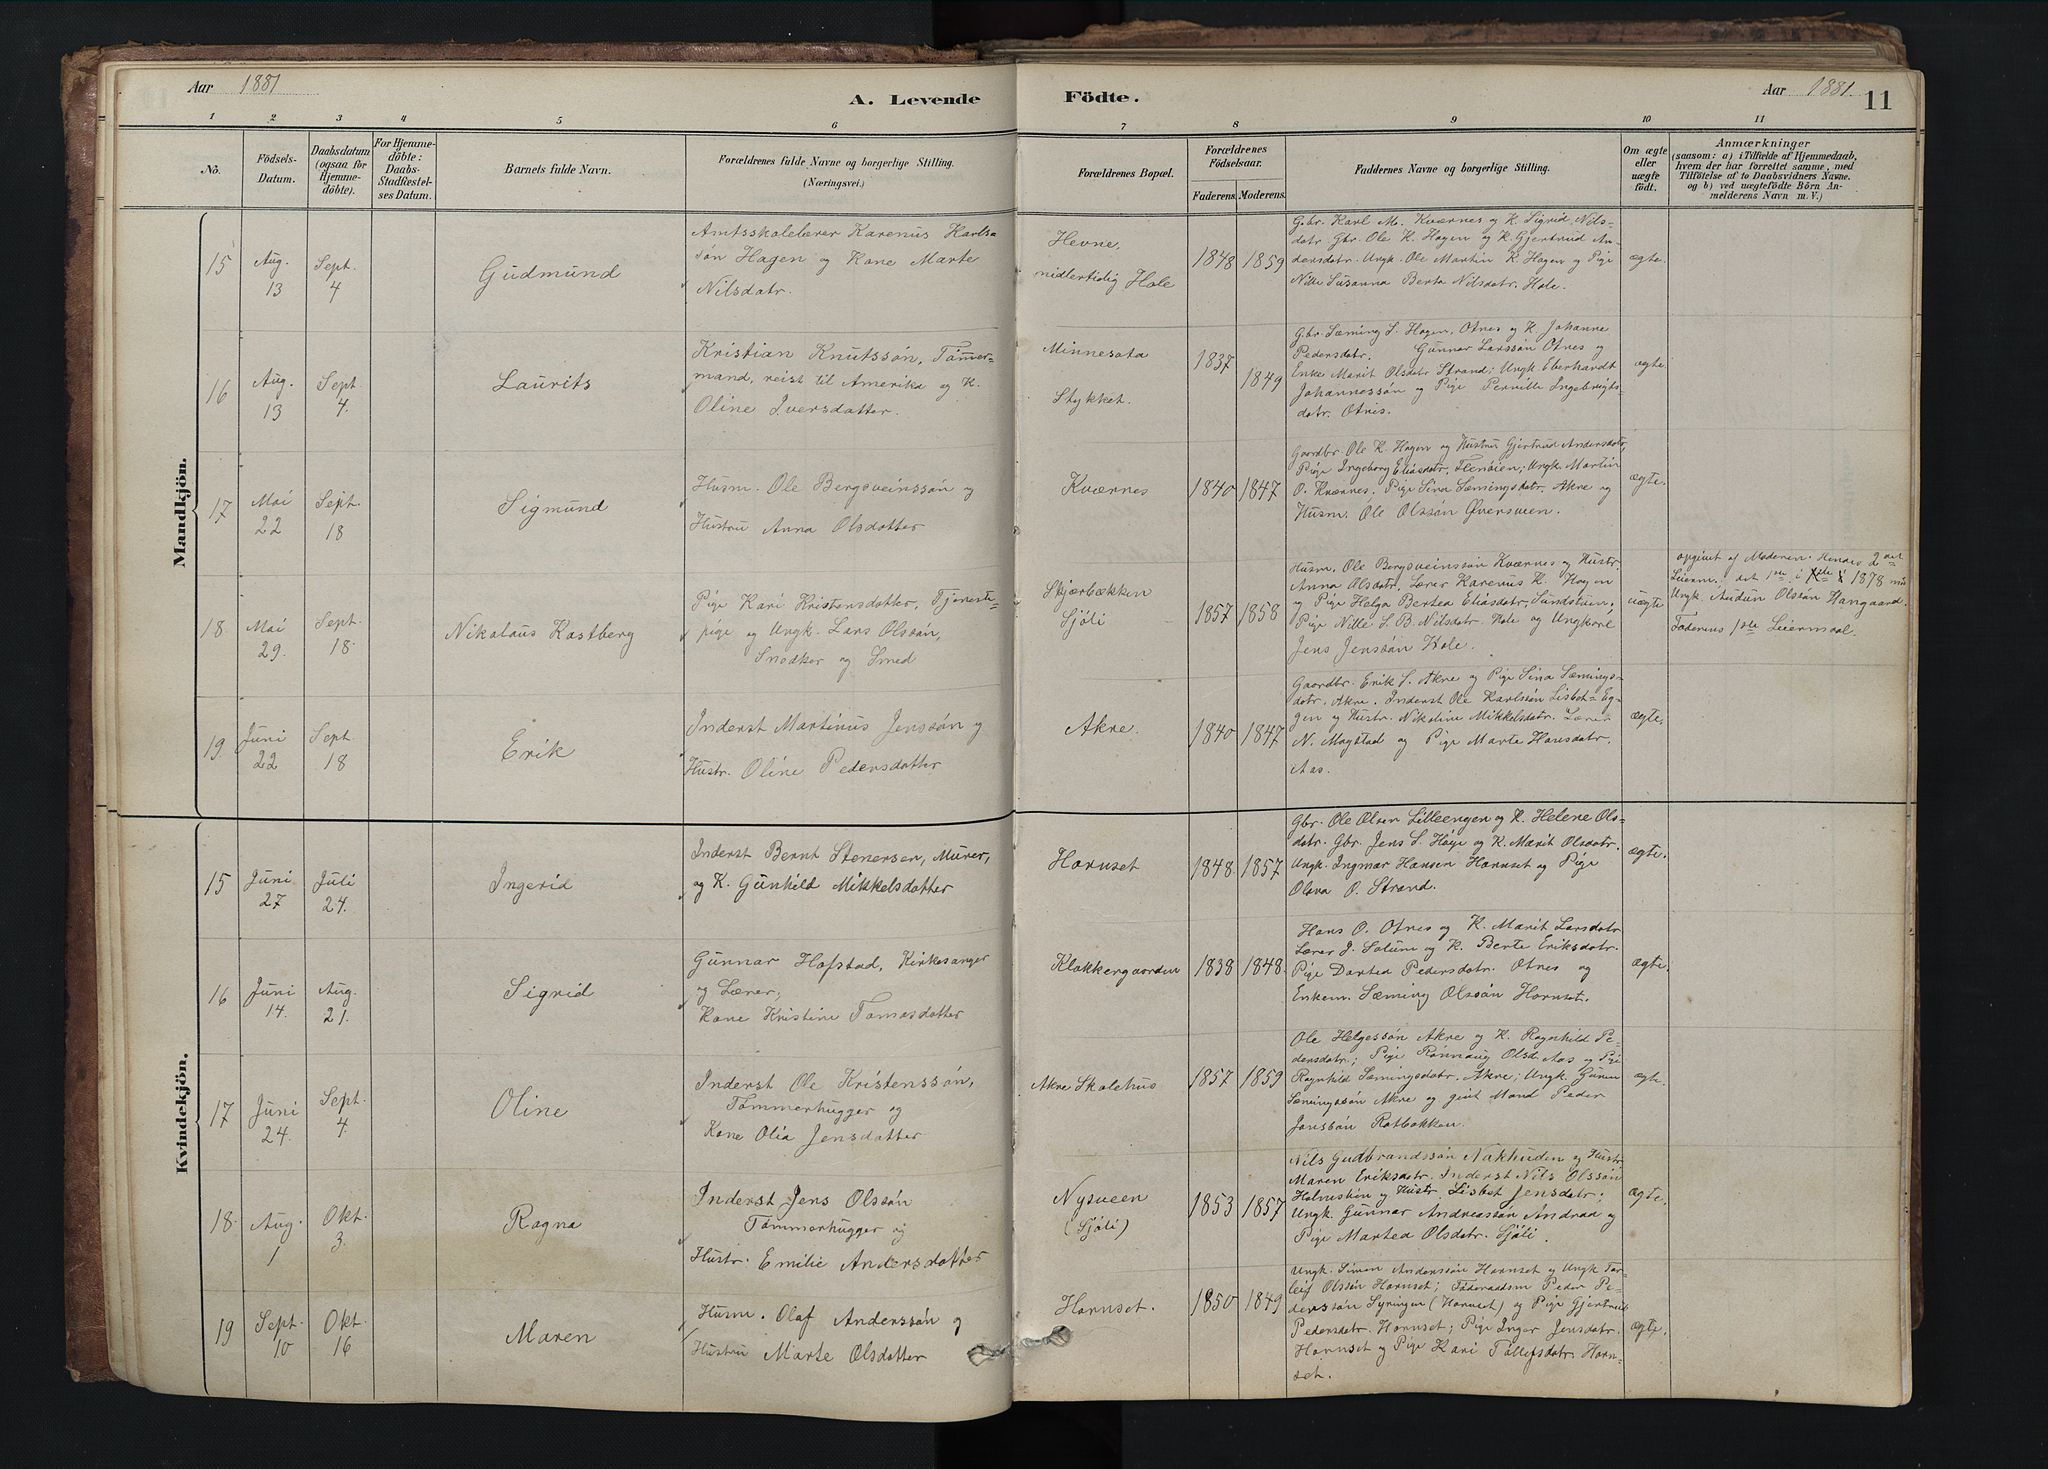 Aar 1881
A. Levende
Födte.
Aar 1881.
11
1 2 3 4 5 6 7 8 9 10 11
No.
Födsels-
Datum.
Daabsdatum
(ogsaa for
Hjemme-
döbte).
For Hjemme-
döbte:
Daabs-
Stadfæstel-
ses Datum.
Barnets fulde Navn.
Forældrenes fulde Navne og borgerlige Stilling.
(Næringsvei.)
Forældrenes Bopæl.
Forældrenes
Födselsaar.
Faderens. Moderens.
Faddernes Navne og borgerlige Stilling.
Om ægte
eller
uægte
födt.
Anmærkninger
(saasom: a) i Tilfælde af Hjemmedaab,
hvem der har forrettet samme, med
Tilföielse af to Daabsvidners Navne,
og b) ved uægtefödte Börn An-
melderens Navn m. V.)
Mandkjön.
15
Aug.
13
Sept.
4
Gudmund
Amtsskolelærer Karenus Karls-
søn Hagen og Kone Marte
Nilsdatr.
Hevne,
midlertidig Hole
1848 1859
Gbr. Karl M. Kværnes og K. Sigrid Nils-
datr Gbr. Ole K. Hagen og K. Gjertrud An-
dersdatr. Ungk. Ole Martin K. Hagen og Pige
Nille Susanna Berta Nilsdatr. Hole.
ægte.
16
Aug.
13
Sept.
4.
Laurits
Kristian Knutssøn, Tømmer-
mand, reist til Amerika og K.
Oline Iversdatter.
Minnesota
Stykket.
1837
1849
Gbr. Sæming S. Hagen, Otnes og K. Johanne
Pedersdatr. Gunnar Larssøn Otnes og
Enke Marit Olsdatr Strand; Ungk. Eberhardt
Johannessøn og Pige Pernille Ingebrigts-
datr. Otnes.
ægte.
17
Mai
22
Sept.
18
Sigmund
Husm. Ole Bergsveinssøn og
Hustru Anna Olsdatter
Kværnes
1840 1847
Gaardbr Ole K. Hagen og Hustru Gjertrud Andersdatr,
Pige Ingeborg Eliasdatr, Flenøien; Ungk. Martin
O. Kværnes, Pige Sina Sæmingsdatr. Akre og
Husm. Ole Olssøn Øversveen.
ægte.
18.
Mai
29.
Sept.
18.
Nikolaus Kastberg
Pige Kari Kristensdatter, Tjeneste-
pige og Ungk. Lars Olssøn,
Snedker og Smed
Skjærbækken
Sjøli
1857 1858
Husm. Ole Bergsveinssøn Kværnes og Hustr.
Anna Olsdatr, Lærer Karenus K. Hagen
og Pige Helga Bertea Eliasdatr, Sundstuen,
Pige Nille S. B. Nilsdatr. Hole og Ungkarl
Jens Jenssøn Hole.
uægte
opgivet af Moderen. Hendes 2det
Leierm., det 1ste i 1878 med
Ungk. Audun Olssøn Haugaard.
Faderens 1ste Leiermaal.
19.
Juni
22
Sept.
18
Erik
Inderst Martinus Jenssøn og
Hustr. Oline Pedersdatter
Akre.
1840 1847
Gaardbr. Erik S. Akre og Pige Sina Sæmings-
datr, Akre. Inderst Ole Karlssøn Lisbet-Eg-
gen og Hustr. Nikoline Mikkelsdatr. Lærer
N. Magstad og Pige Marte Hansdatr.
i Aas.
ægte.
Kvindekjön.
15
Juni
27
Juli
24.
Ingerid
Inderst Bernt Stenersen, Murer,
og K. Gunhild Mikkelsdatter
Hornset
1848. 1857
Gbr. Ole Olsen Lilleengen og K. Helene Ols-
datr. Gbr. Jens S. Høye og K. Marit Olsdatr.
Ungk. Ingmar Hansen Hornset og Pige
Olava O. Strand.
ægte.
16
Juni
14.
Aug.
21.
Sigrid
Gunnar Hofstad, Kirkesanger
og Lærer,
Kone Kristine Tomasdatter
Klokkergaarden
1838 1848.
Hans O. Otnes og K. Marit Larsdatr.
Lærer J. Solum og K. Berte Eriksdatr.
Pige Dartea Pedersdatr. Otnes og
Enkem. Sæming Olssøn Hornset.
ægte.
17
Juni
24.
Sept.
4.
Oline
Inderst Ole Kristenssøn,
Tømmerhugger og
Kone Olia Jensdatter
Akre Skolehus
1857 1859
Ole Helgessøn Akre og K. Ragnhild Pe-
dersdatr.; Pige Rønnaug Olsd. Aas og Pige
Ragnhild Sæmingsdatr, Akre; Ungk. Gunnar
Sæmingssøn Akre og givt Mand Peder
Jonssøn Ratbakken.
ægte.
18.
Aug.
1
Okt.
3.
Ragna
Inderst Jens Olssøn
Tømmerhugger og
Hustr. Emilie Andersdatter
Nysveen
(Sjøli)
1853 1857
Nils Gudbrandssøn Nakhuden og Hustr
Maren Eriksdatr. Inderst Nils Olssøn
Holmstien og Hustr. Lisbet Jensdatr;
Ungk. Gunnar Andreassøn Andraa og
Pige Martea Olsdatr. Sjøli.
ægte.
19
Sept.
10
Okt.
16
Maren
Husm. Olaf Anderssøn og
Hustru Marte Olsdatter
Hornset.
1850 1849
Ungk. Simen Anderssøn Hornset og Ungk Tor-
leif Olssøn Hornset; Føderaadsm Peder Pe-
derssøn Syringen (Hornset) og Pige Gjertrud
Pedersdatr. Hornset; Pige Inger Jensdatr.
Hornset og Pige Kari Tollefsdatr. Horn-
set.
ægte.